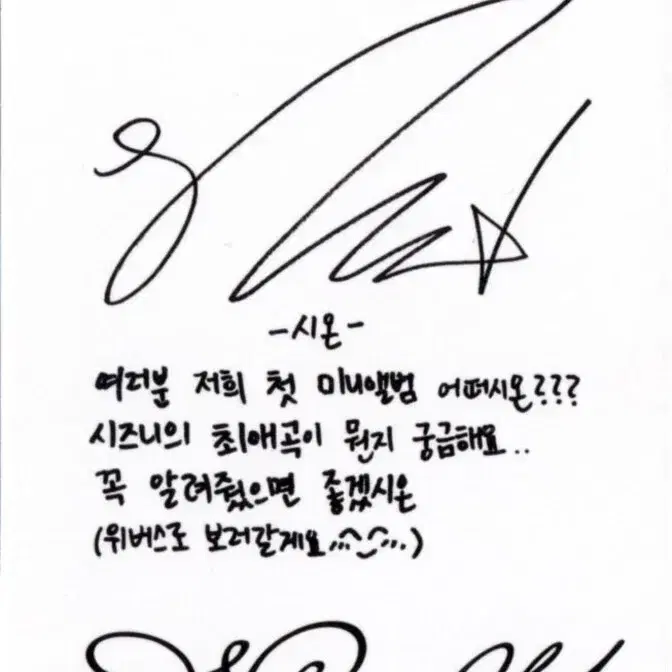 -시온-
여러분 저희 첫 미니앨범 어떠시온???
시즈니의 최애곡이 뭔지 궁금해요..
꼭 알려줬으면 좋겠시온
(위버스로 보러갈게요...^^...)